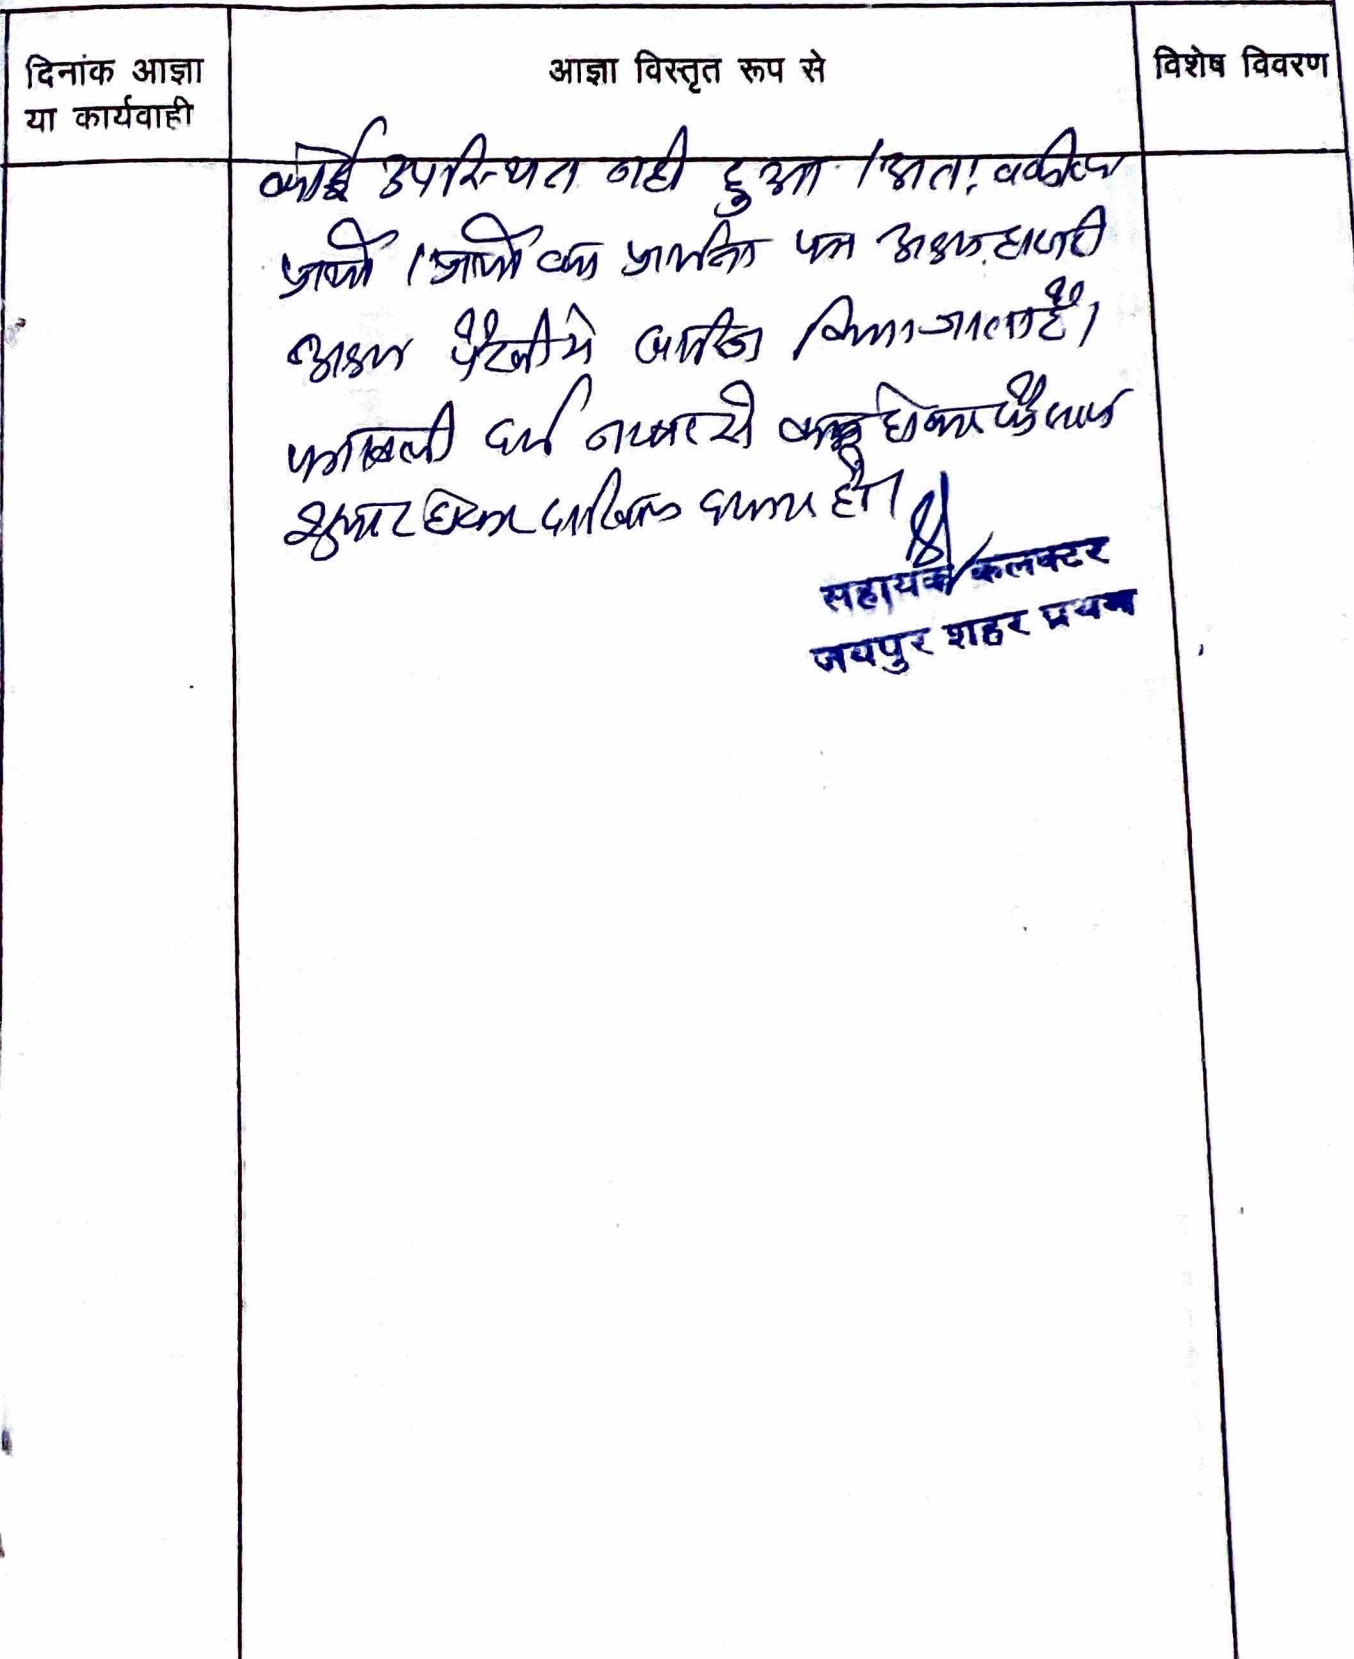 दिनांक आज्ञा
या कार्यवाही
आज्ञा विस्तृत रूप से
विशेष विवरण
कोई उपस्थित नही हुआ । अतः वकील
प्रार्थी / प्रार्थी का प्रार्थना पत्र अदम हाजरी
अदम पैरवी मे खारिज किया जाता है।
पत्रावली दर्ज नम्बर से कम होकर फैसल
शुमार होकर दाखिल दफ्तर हो।
सहायक कलक्टर
जयपुर शहर प्रथम